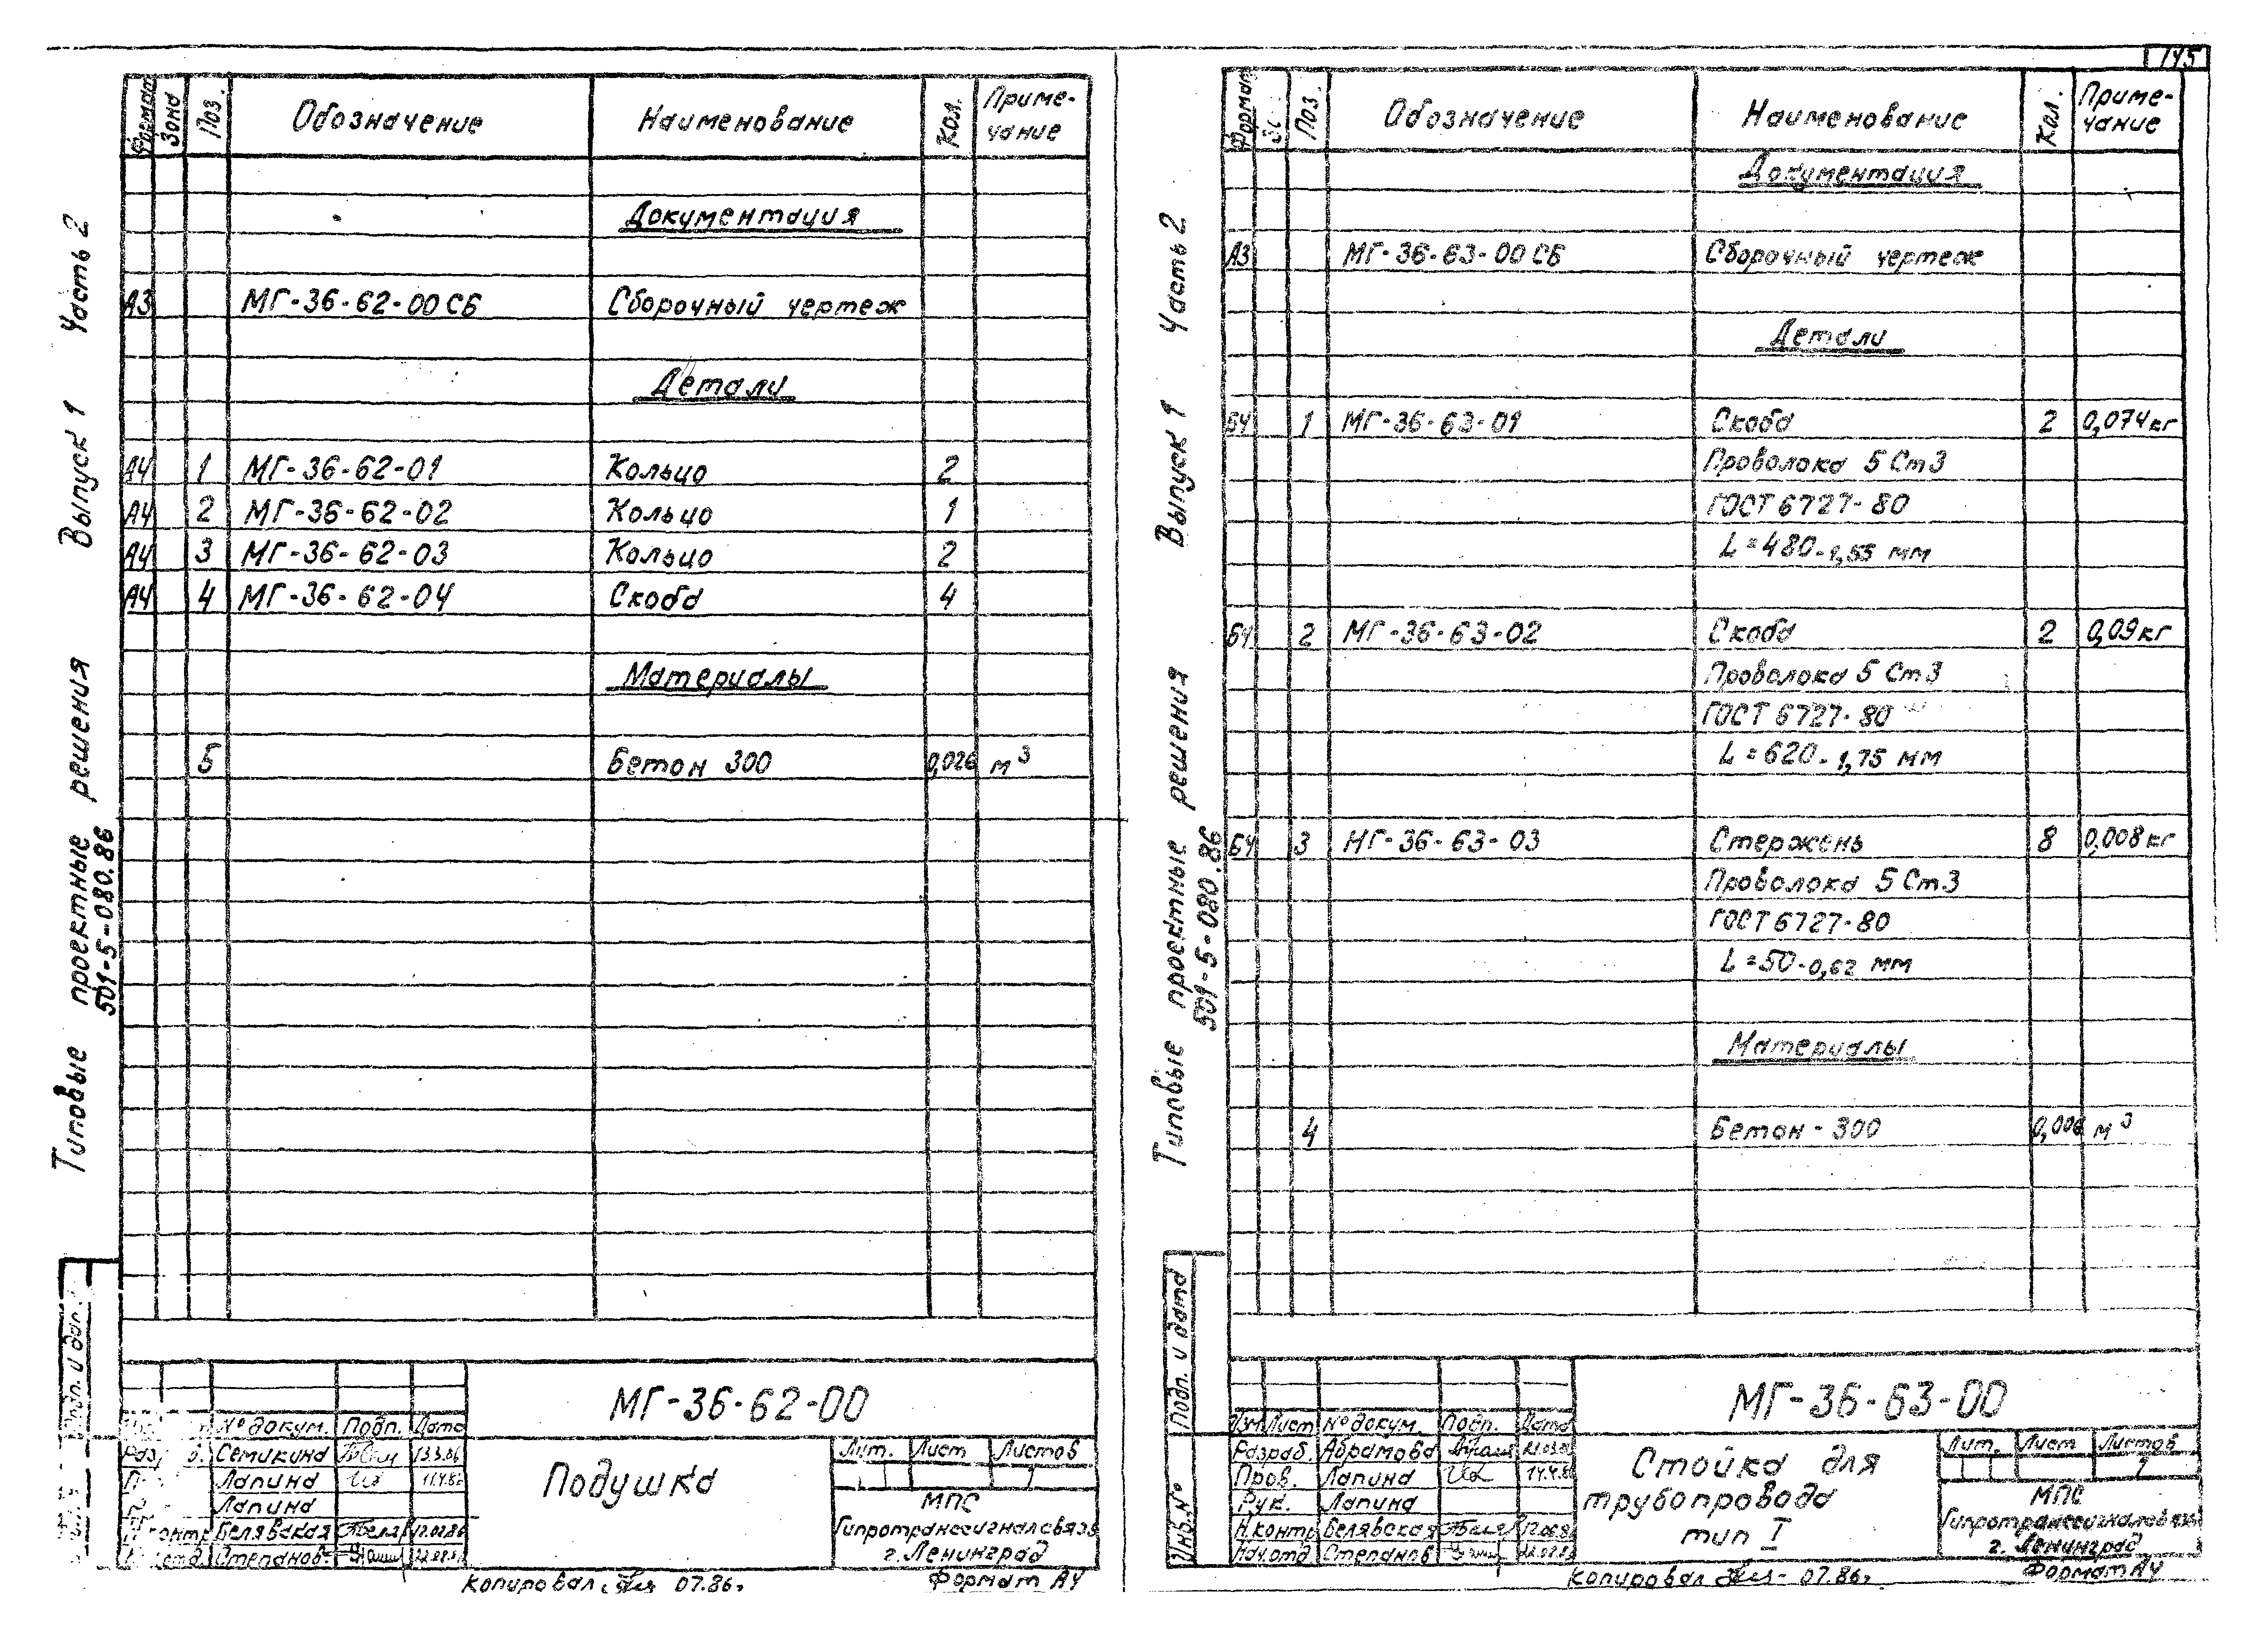 145
Типовые проектные решения 501-5-080.86 Выпуск 1 Часть 2
Формат Зона Поз. Обозначение Наименование Кол. Приме-
чание
Документация
А3 МГ-36-62-00 СБ Сборочный чертеж
Детали
А4 1 МГ-36-62-01 Кольцо 2
А4 2 МГ-36-62-02 Кольцо 1
А4 3 МГ-36-62-03 Кольцо 2
А4 4 МГ-36-62-04 Скоба 4
Материалы
5 Бетон 300 0,026 м³
Подп. и дат
МГ-36-62-00
№ докум. Подп. Дата
Семикина 13.3.86
Лапина 11.4.86
Лапина
Н.контр Белявская 12.02.86
Степанов
Подушка
Лит. Лист Листов
1
МПС
Гипротранссигналсвязь
г. Ленинград
Копировал 07.86г.
Формат А4
Типовые проектные решения 501-5-080.86 Выпуск 1 Часть 2
Формат Поз. Обозначение Наименование Кол. Приме-
чание
Документация
А3 МГ-36-63-00 СБ Сборочный чертеж
Детали
БЧ 1 МГ-36-63-01 Скоба 2 0,074 кг
Проволока 5 Ст3
ГОСТ 6727-80
L=480-1,55 мм
БЧ 2 МГ-36-63-02 Скоба 2 0,09 кг
Проволока 5 Ст3
ГОСТ 6727-80
L=620-1,75 мм
БЧ 3 МГ-36-63-03 Стержень 8 0,008 кг
Проволока 5 Ст3
ГОСТ 6727-80
L=50-0,62 мм
Материалы
4 Бетон-300 0,006 м³
Подп. и дата
Инв. №
МГ-36-63-00
Изм Лист № докум. Подп. Дата
Разраб. Абрамова
Пров. Лапина 14.4.86
Рук. Лапина
Н.контр Белявская
Нач.отд Степанов
Стойка для
трубопровода
тип I
Лит. Лист Листов
1
МПС
Гипротранссигналсвязь
г. Ленинград
Копировал 07.86г.
Формат А4